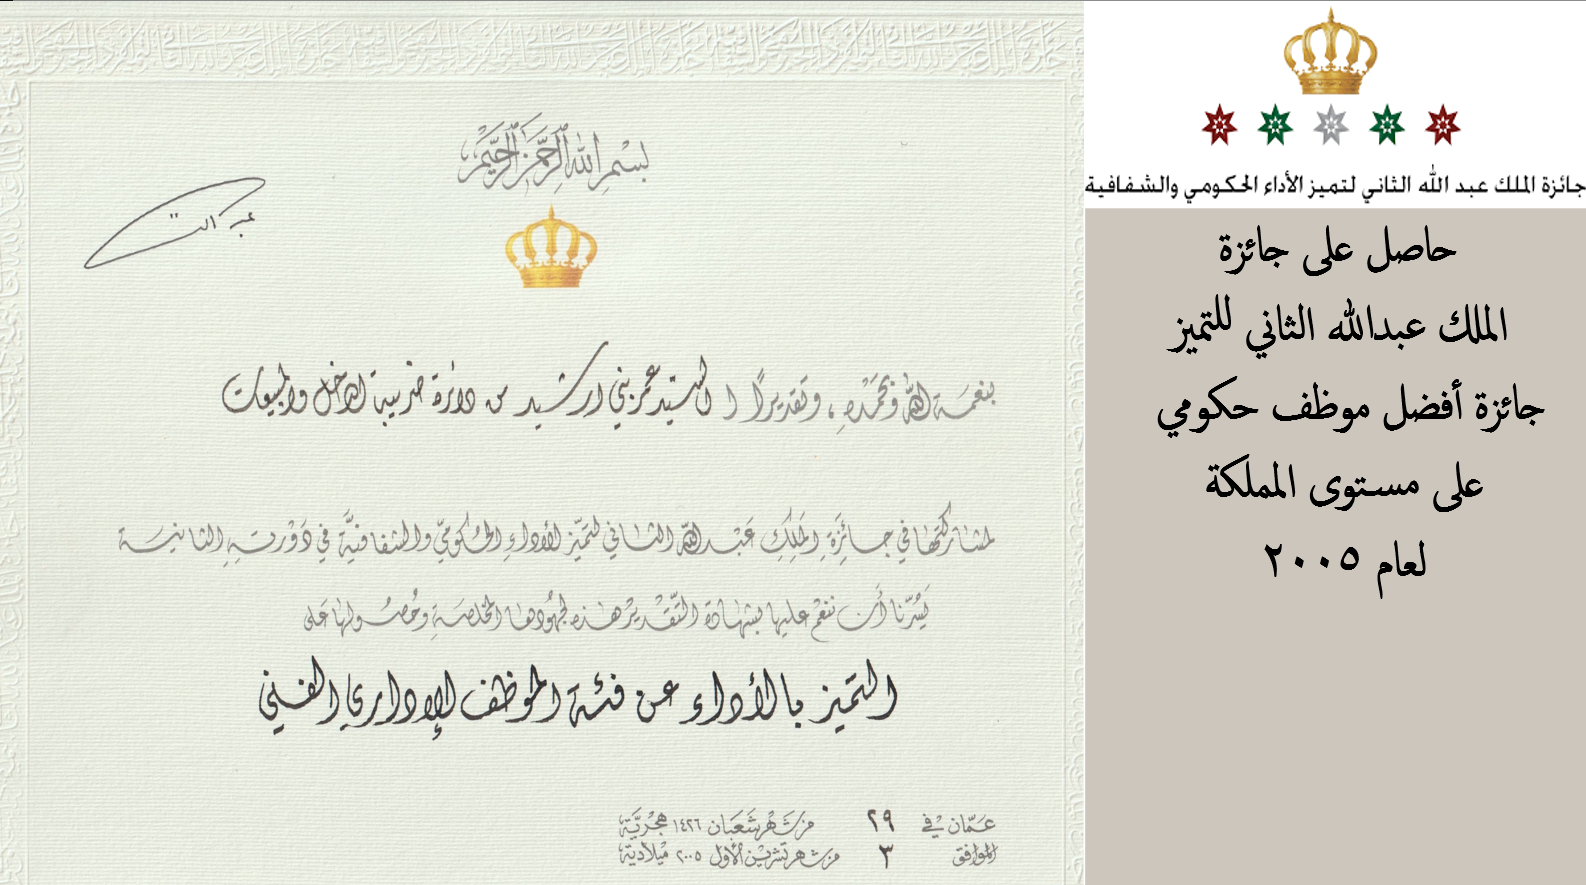 بسم الله الرحمن الرحيم
عبدالله
بنعمة الله وبحمده، وتقديرًا لـ السيد عمر بني ارشيد من دائرة ضريبة الدخل والمبيعات
لمشاركتها في جائزة الملك عبد الله الثاني لتميّز الأداء الحكوميّ والشفافيّة في دورتها الثانية
يَسُرّنا أن ننعم عليها بشهادة التّقدير هذه لجهودها المخلصة وحصولها على
التميز بالأداء عن فئة الموظف الإداري الفني
عمّان في ٢٩ من شهر شعبان ١٤٢٦ هجريّة
الموافق ٣ من شهر تشرين الأول ٢٠٠٥ ميلادية
جائزة الملك عبد الله الثاني لتميز الأداء الحكومي والشفافية
حاصل على جائزة
الملك عبدالله الثاني للتميز
جائزة أفضل موظف حكومي
على مستوى المملكة
لعام ٢٠٠٥